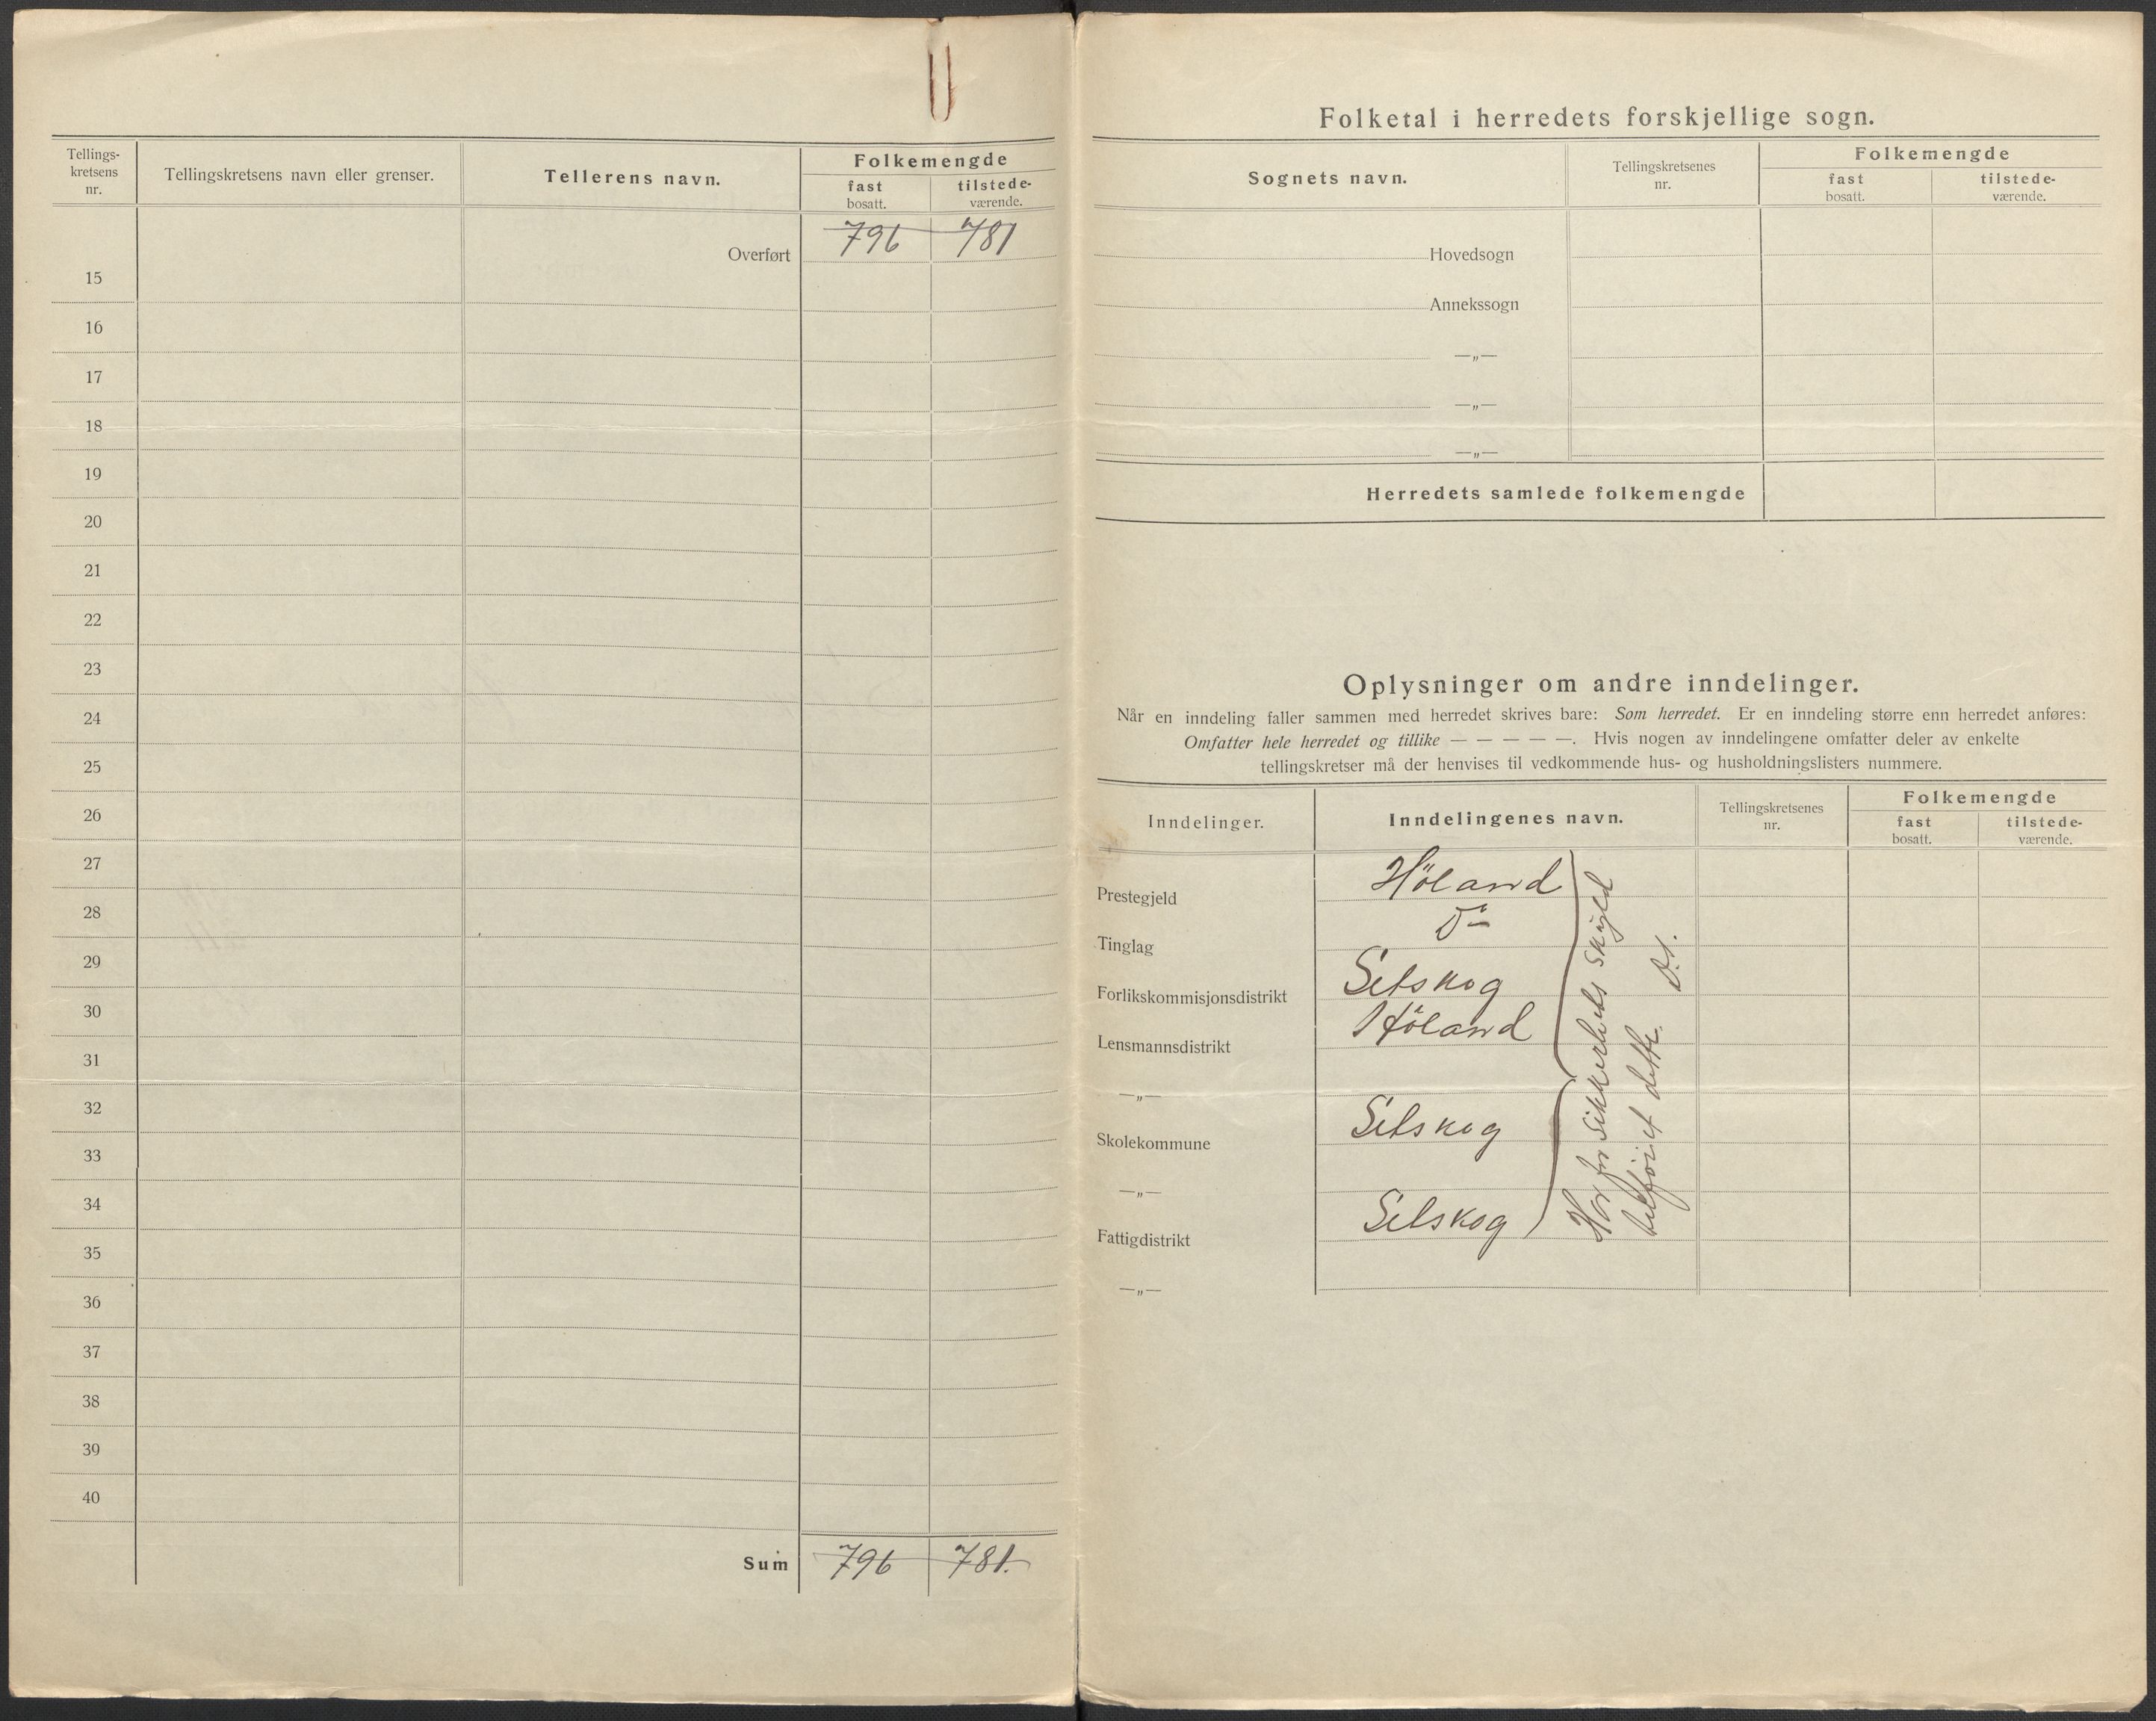 Tellings-
kretsens
nr.
Tellingskretsens navn eller grenser.
Tellerens navn.
Folkemengde
fast
bosatt.
tilstede-
værende.
Overført 796 781
15
16
17
18
19
20
21
22
23
24
25
26
27
28
29
30
31
32
33
34
35
36
37
38
39
40
Sum 796 781.
Folketal i herredets forskjellige sogn.
Sognets navn.
Tellingskretsenes
nr.
Folkemengde
fast
bosatt.
tilstede-
værende.
Hovedsogn
Annekssogn
—„—
—„—
—„—
Herredets samlede folkemengde
Oplysninger om andre inndelinger.
Når en inndeling faller sammen med herredet skrives bare: Som herredet. Er en inndeling større enn herredet anføres:
Omfatter hele herredet og tillike — — — — —. Hvis nogen av inndelingene omfatter deler av enkelte
tellingskretser må der henvises til vedkommende hus- og husholdningslisters nummere.
Inndelinger.
Inndelingenes navn.
Tellingskretsenes
nr.
Folkemengde
fast
bosatt.
tilstede-
værende.
Prestegjeld Höland
Tinglag Do
Forlikskommisjonsdistrikt Setskog
Lensmannsdistrikt Höland
—„—
Skolekommune Setskog
—„—
Fattigdistrikt Setskog
—„—
Har for sikkerhets skyld
tilföiet dette. D.S.